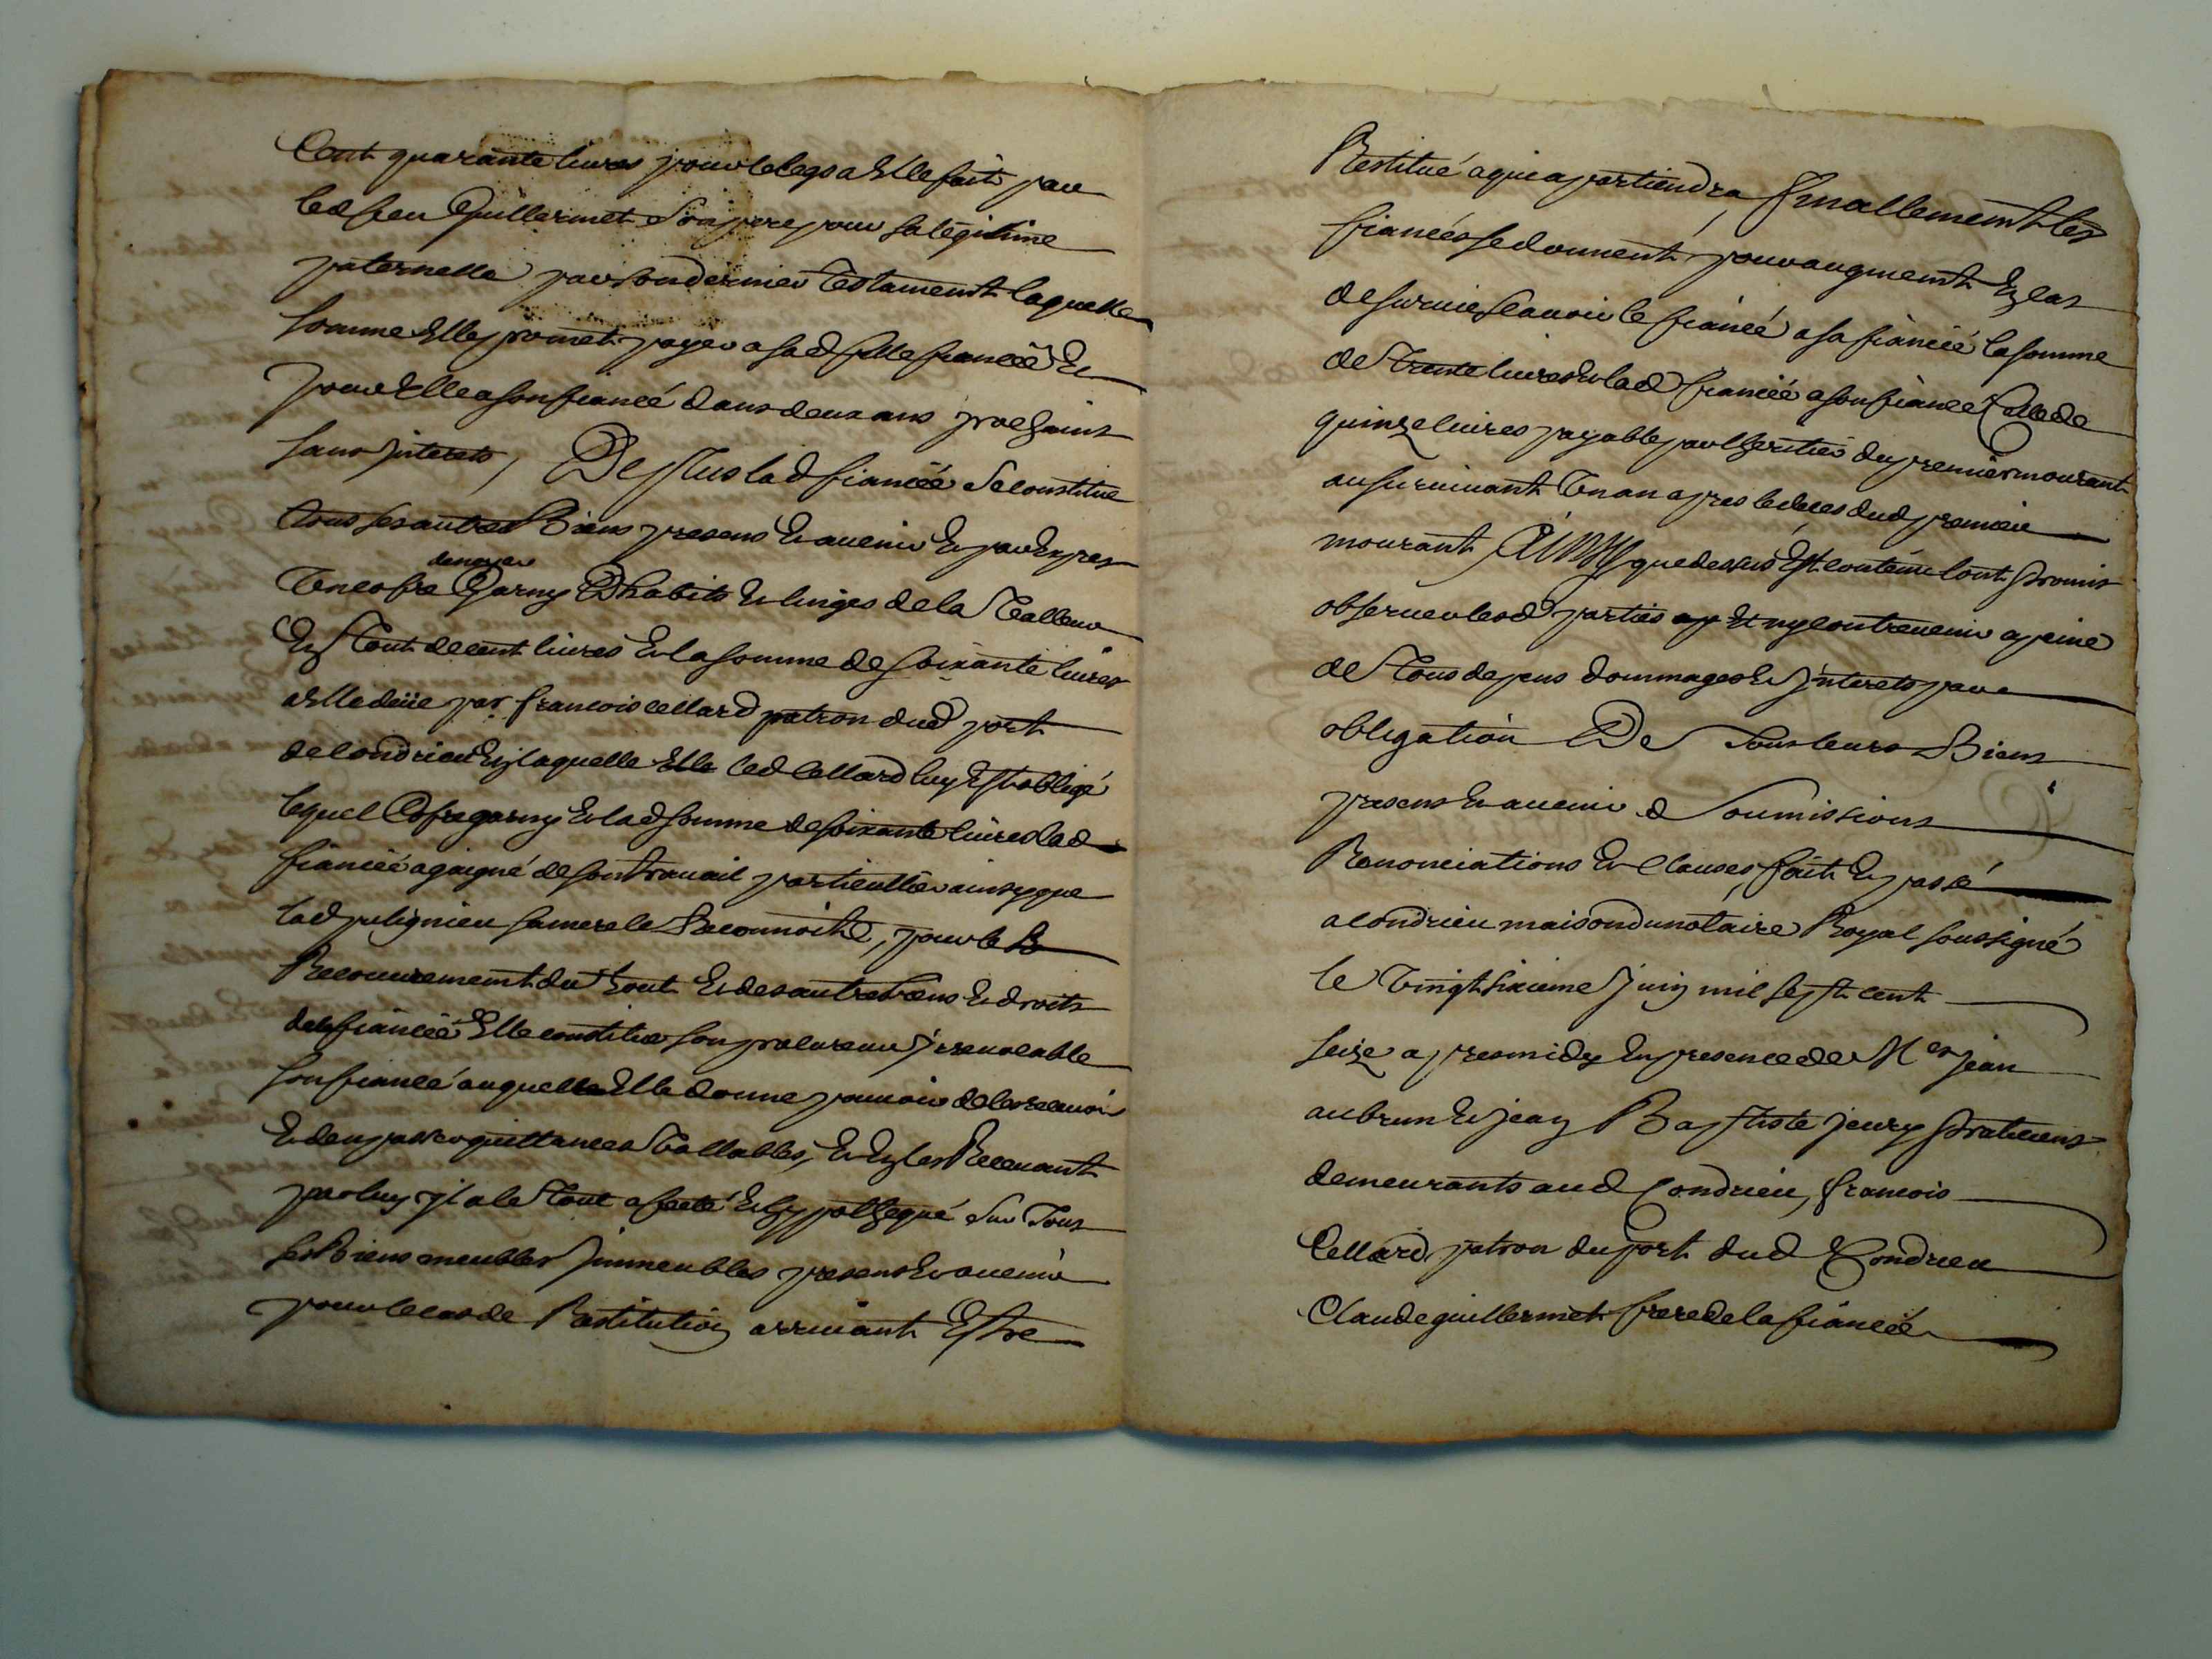 Cent quarante livres pour le legs a Elle fait par
led feu Guillermet Son pere pour sa legitime
paternelle par son dernier Testament laquelle
somme Elle promet payer a sad fille fiancée Et
pour Elle a son fiancé dans deux ans prochains
sans jnterets, De plus lad fiancée Se constitue
tous ses autres Biens presens Et avenir Et par Expres
Un cofre de noyer Garny D'habits Et linges de la Valleur
En Tout de cent livres Et la somme de soixante livres
a Elle deüe par francois cellard patron dud port
de Condrieu En laquelle Elle led Cellard luy Est obligé
lequel Cofre garny Et lad somme de soixante livres lad
fiancée a gaigné de son travail particullier ainsy que
lad pulignieu sa mere le Reconnoit, pour le R
Recouvrement du tout Et des autres biens Et droits
de la fiancée Elle constitue son procureur jrrevocable
son fiancé auquel Elle donne pouvoir de les recevoir
Et d'en passer quittances Vallables, Et En les Recevant
par luy jl a le Tout afecté Et hypothequé Sur Tous
ses Biens meubles jmmeubles presens Et avenir
pour le cas de Restitution arrivant Estre
Restitué a qui apartiendra finallement les
fiancés se donnent pour augment En cas
de survie scavoir le fiancé a sa fiancée la somme
de Trente livres Et lad fiancée a son fiancé Celle de
quinze livres payable par l'heritier du premier mourant
au survivant Un an apres le deces dud premier
mourant Ainsy que dessus Est contenu l'ont promis
observer lesd parties Et ny contrevenir a peine
de Tous depens dommages Et jnterets par
obligation De Tous leurs Biens
presens Et avenir Soumissions
Renonciations Et Clauses, fait Et passé
a Condrieu maison du notaire Royal soussigné
le Vingt sixieme juin mil sept cent
seize apres midy En presence de Mes jean
aubrun Et jean Baptiste jeury praticiens
demeurants aud Condrieu, francois
Cellard patron du port dud Condrieu
Claude guillermet frere de la fiancée